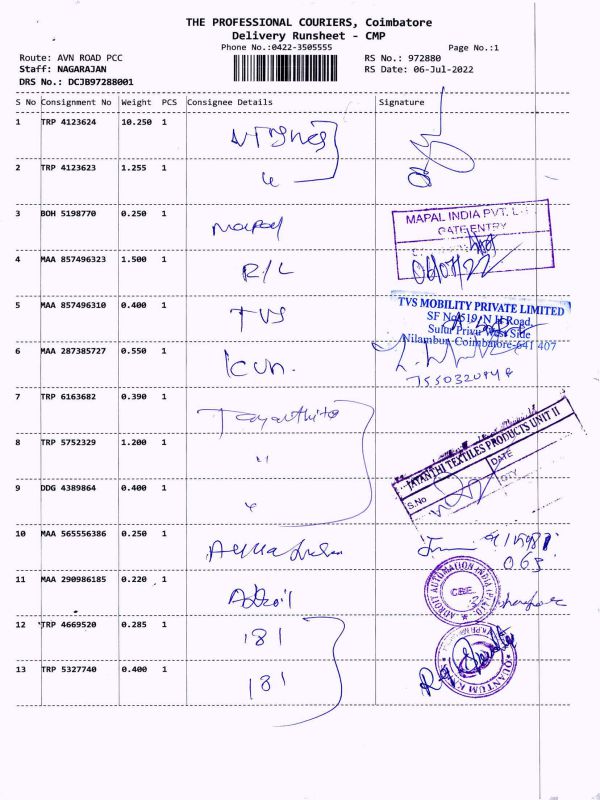 THE PROFESSIONAL COURIERS, Coimbatore
Delivery Runsheet - CMP
Phone No.:0422-3505555
Page No.:1
Route: AVN ROAD PCC
RS No.: 972880
Staff: NAGARAJAN
RS Date: 06-Jul-2022
DRS No.: DCJB97288001
S No Consignment No Weight PCS Consignee Details Signature
1 TRP 4123624 10.250 1
2 TRP 4123623 1.255 1
3 BOH 5198770 0.250 1 Mapal
MAPAL INDIA PVT. L
GATE ENTRY
06/07/22
4 MAA 857496323 1.500 1 R/L
5 MAA 857496310 0.400 1 TVS
TVS MOBILITY PRIVATE LIMITED
SF No 519, N H Road,
Sulur Privu West Side
Nilambur, Coimbatore-641 407
6 MAA 287385727 0.550 1
7 TRP 6163682 0.390 1
JAYANTHI TEXTILES PRODUCTS UNIT II
S.No
DATE
QTY
8 TRP 5752329 1.200 1 "
9 DDG 4389864 0.400 1
10 MAA 565556386 0.250 1
063
11 MAA 290986185 0.220 1 Adroit
ADROIT AUTOMATION INDIA (P) LTD
CBE.
12 TRP 4669520 0.285 1 181
13 TRP 5327740 0.400 1 181
QUANTUM